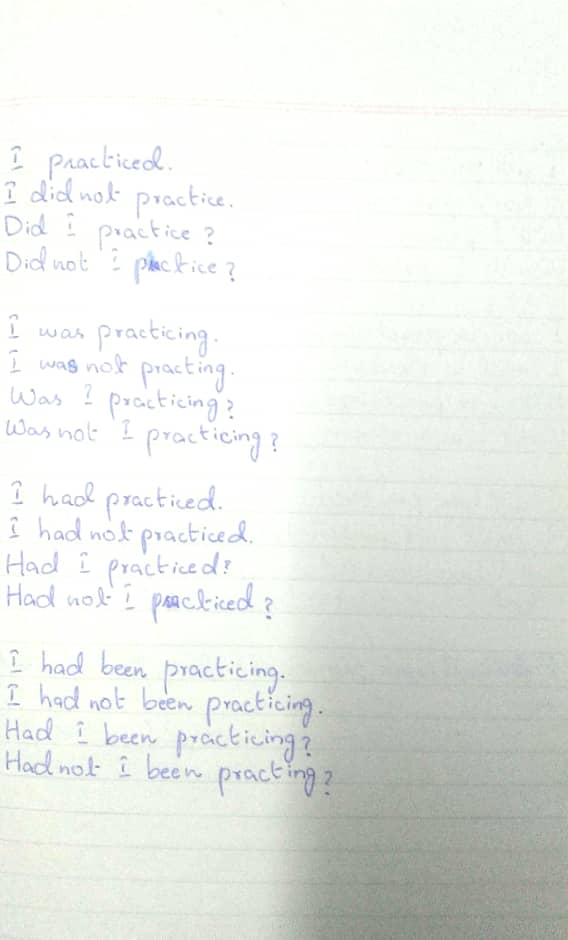 I practiced.
I did not practice.
Did I practice ?
Did not I practice ?
I was practicing.
I was not practing.
Was I practicing ?
Was not I practicing ?
I had practiced.
I had not practiced.
Had I practiced?
Had not I practiced ?
I had been practicing.
I had not been practicing.
Had I been practicing ?
Had not I been practing ?